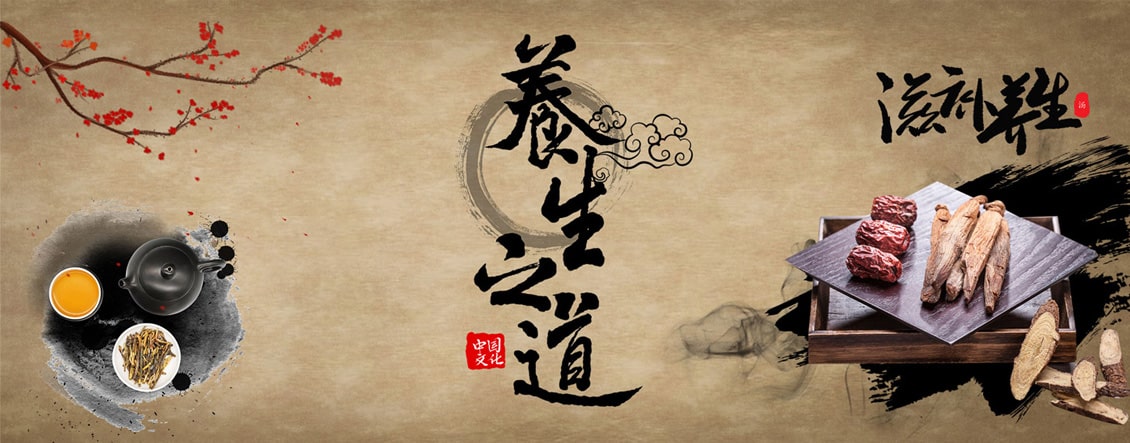 養生之道
中国
文化
滋补养生